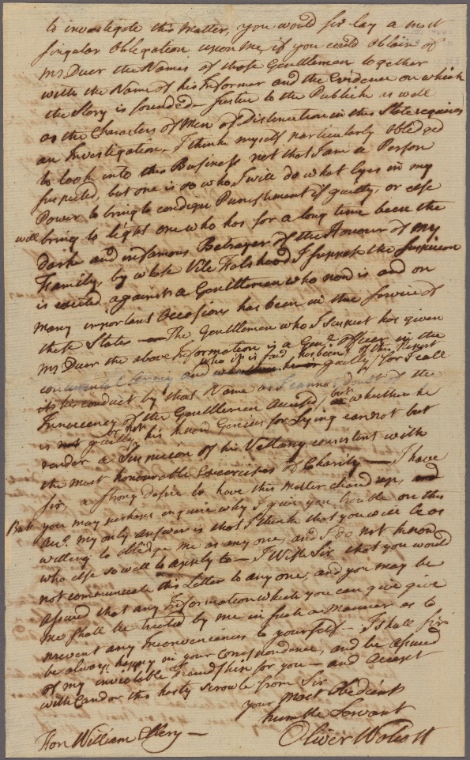 to investigate this Matter, you would Sir lay a most
singular Obligation upon me if you could obtain of
Mr Duer the Names of those Gentlemen together
with the Name of his Informer and the Evidence on which
the Story is founded — Justice to the Publick as well
as the Characters of Men of Distinction in this State requires
an Investigation. I think myself particularly obliged
to look into this Business not that I am a Person
suspected, but one is so who I will do what lyes in my
Power to bring to condign Punishment if guilty, or else
will bring to light one who has for a long time been the
dark and infamous Betrayer of the Honour of my
Family, by whose Vile Falshoods I suspect the Suspicion
is excited against a Gentleman who now is and on
many important Occasions has been in the Service of
these State — The Gentleman who I suspect has given
Mr Duer the above Information is a Genl Officer in the
Continental Army and who it is said has been of this
conduct by that Name as I cannot of the
Innocency of the Gentleman Accused but whether he
is not guilty his known Genious for Lying cannot but
render a Suspicion of his Villany consistent with
the most honourable Excercises of Charity — I have
Sir a strong desire to have this Matter cleared up, and
But you may perhaps enquire why I give you trouble on this
Acct. my only answer is that I think that you will be as
willing to oblige me as any one, and I do not know
who else so well to apply to — I Wish Sir that you would
not communicate this Letter to any one, and you may be
assured that any Information which you can give give
me shall be treated by me in such a Manner as to
prevent any Inconveniences to yourself. I shall Sir
be always happy in your Correspondence, and be assured
of my inviolable Friendship for you — and Accept
with Candor this hasty scrowle from Sir
your most Obedient
humble Servant
Oliver Wolcott
Hon William Ellery —